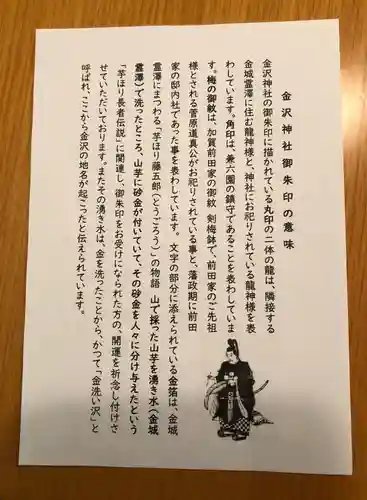 金沢神社御朱印の意味
金沢神社の御朱印に描かれている丸印の二体の龍は、隣接する
金城霊澤に住む龍神様と、神社にお祀りされている龍神様を表
わしています。角印は、兼六園の鎮守であることを表わしていま
す。梅の御紋は、加賀前田家の御紋 剣梅鉢で、前田家のご先祖
様とされる菅原道真公がお祀りされている事と、藩政期に前田
家の邸内社であった事を表わしています。文字の部分に添えられている金箔は、金城
霊澤にまつわる「芋ほり藤五郎（とうごろう）」の物語 山で採った山芋を湧き水（金城
霊澤）で洗ったところ、山芋に砂金が付いていて、その砂金を人々に分け与えたという
「芋ほり長者伝説」に関連し、御朱印をお受けになられた方の、開運を祈念し付けさ
せていただいております。またその湧き水は、金を洗ったことから、かつて「金洗い沢」と
呼ばれ、ここから金沢の地名が起こったと伝えられています。